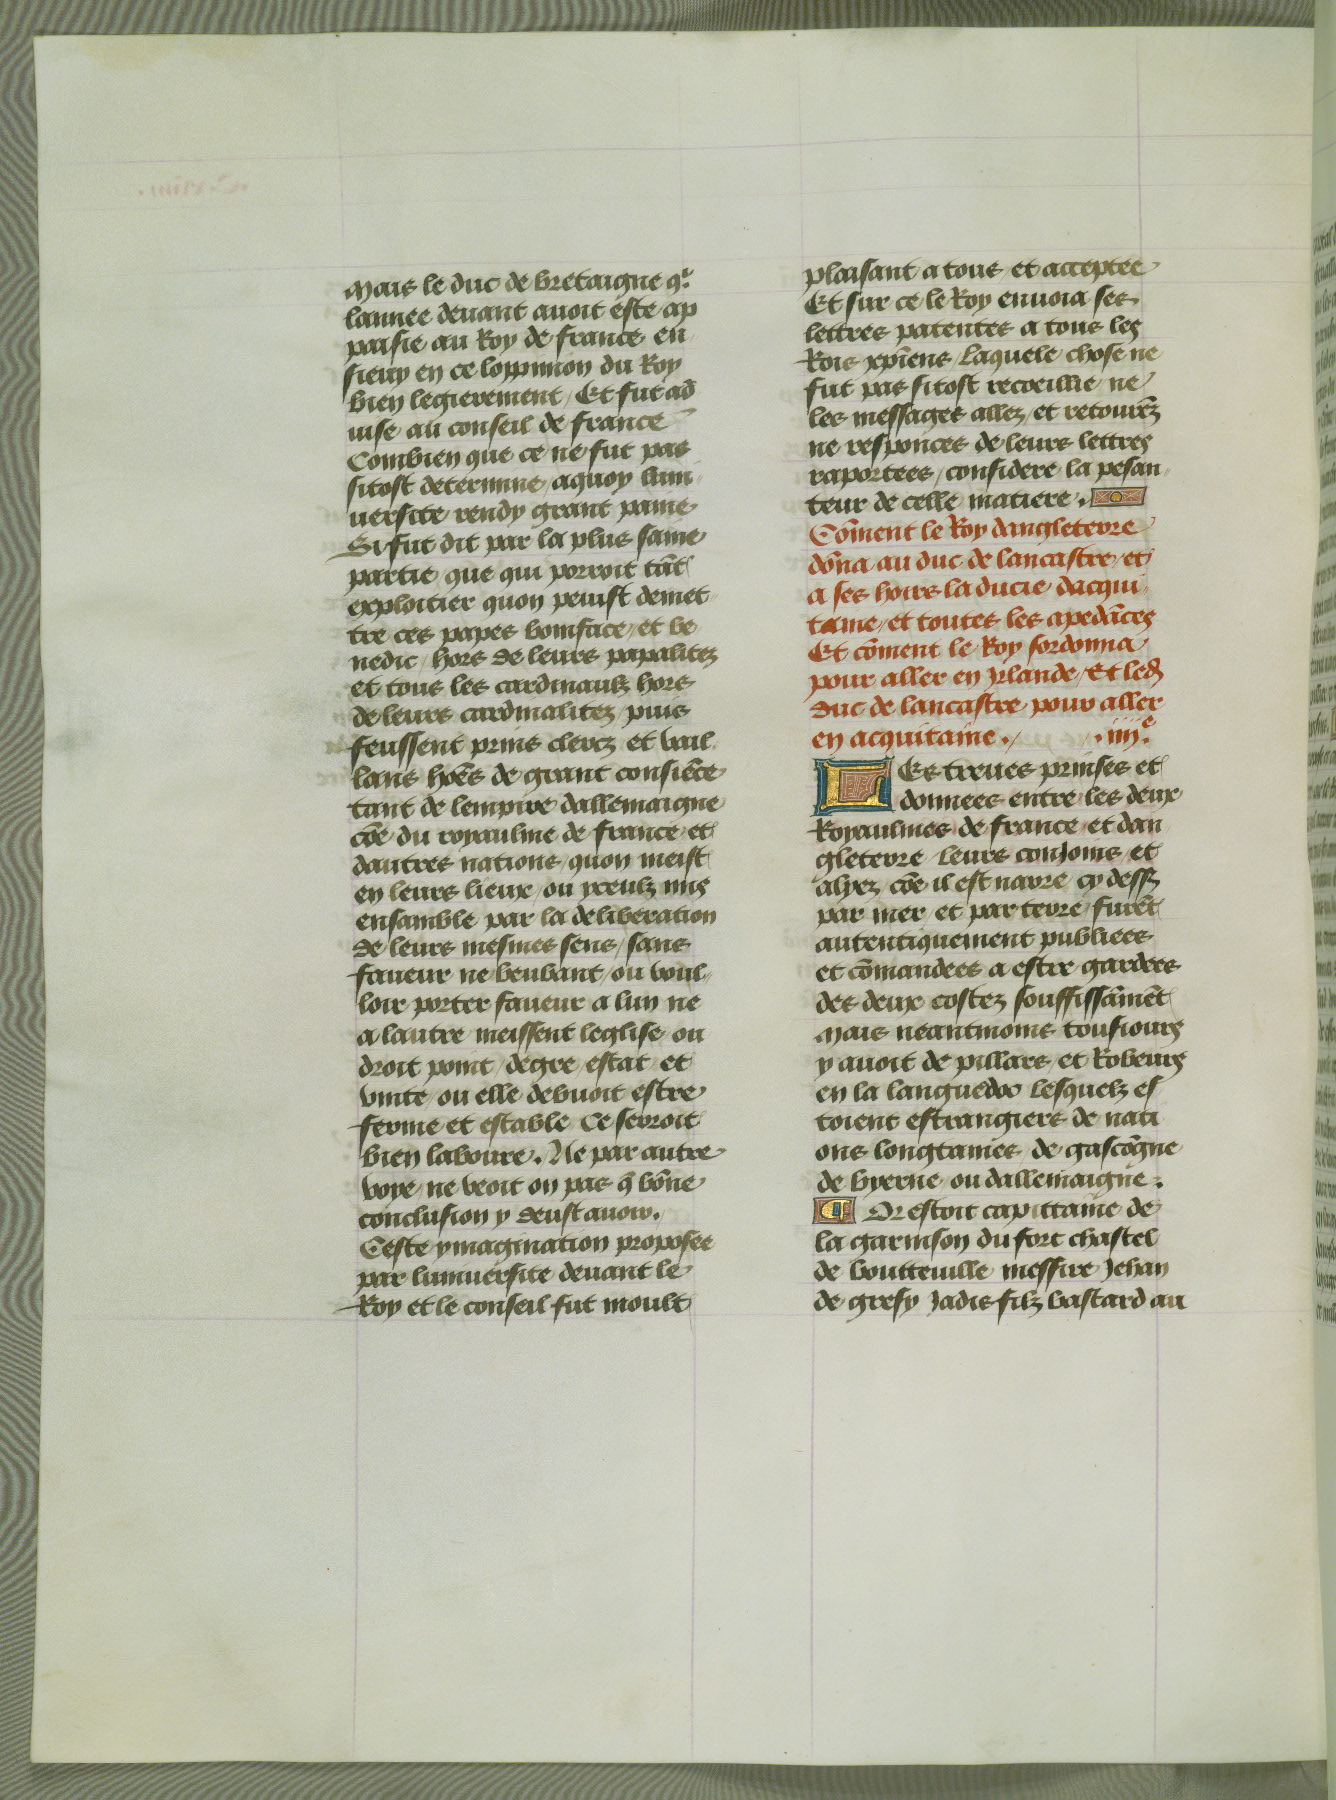 Mais le duc de bretaigne q̃
lannee deuant auoit este ap
paisie au Roy de france en
sieuy en ce loppinion du Roy
bien legierement / Et fut ad
uise au conseil de france
Combien que ce ne fut pas
sitost determine / aquoy luni
uersite rendy grant paine
Si fut dit par la plus saine
partie que qui porroit tãt
exploitier quon peuist demet
tre ces papes boniface / et be
nedic / hors de leurs papalitez
et tous les cardinaulz hors
de leurs cardinalitez / puis
feussent prins clercz et vail
lans hões de grant consiẽce
tant de lempire dallemaigne
cõe du royaulme de france et
dautres nations / quon meist
en leurs lieux / ou yceulz mis
ensamble par la deliberation
de leurs mesmes sens / sans
faueur ne beubant / ou voul
loir porter faueur a lun ne
a lautre meissent leglise ou
droit point / degre estat et
vnite / ou elle debuoit estre
ferme et estable Ce seroit
bien laboure . Ne par autre
voye ne veoit on pas q̃ bõne
conclusion y deust auoir .
Ceste ymagination proposee
par luniuersite deuant le
Roy et le conseil fut moult
plaisant a tous et acceptee
Et sur ce le Roy enuoia ses
lettres patentes a tous les
Rois xp̃iens Laquele chose ne
fut pas sitost recoeillie ne
les messages allez et retournez
ne responces de leurs lettres
raportees / considere la pesan
teur de celle matiere .
Cõment le Roy dangleterre
dõna au duc de lancastre / et
a ses hoirs la ducie dacqui
taine / et toutes les apẽdãces
Et cõment le Roy sordonna
pour aller en Jrlande / Et led
duc de lancastre pour aller
en acquitaine . / . iiij.e
Les treues prinses et
donnees entre les deux
Royaulmes de france et dan
gleterre Leurs conJoins / et
alyez cõe il est narre cy dess
par mer et par terre / furẽt
autentiquement publiees
et cõmandees a estre gardees
des deux costez souffissãmẽt
Mais neantmoins tousiours
y auoit de pillars et Robeurs
en la languedoc Lesquelz es
toient estrangiers de nati
ons longtaines de gascõgne
de byerne ou dallemaigne .
Or estoit capittaine de
la garnison du fort chastel
de boutteuille messire Jehan
de gresy Jadis filz bastard au